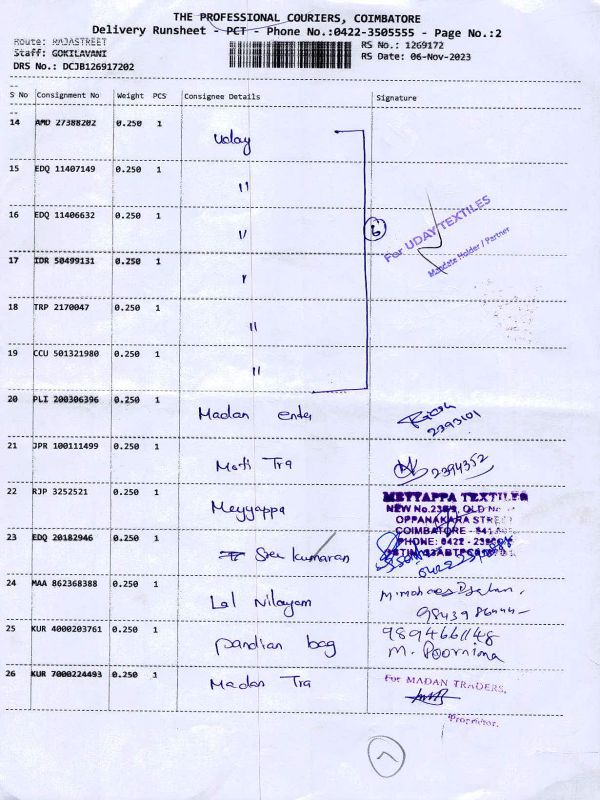 THE PROFESSIONAL COURIERS, COIMBATORE
Delivery Runsheet - PCT - Phone No.:0422-3505555 - Page No.:2
Route: RAJASTREET
Staff: GOKILAVANI
DRS No.: DCJB126917202
RS No.: 1269172
RS Date: 06-Nov-2023
S No Consignment No Weight PCS Consignee Details Signature
14 AMD 27388202 0.250 1 Uday
15 EDQ 11407149 0.250 1 "
16 EDQ 11406632 0.250 1 "
6
For UDAY TEXTILES
Mandate Holder / Partner
17 IDR 50499131 0.250 1 "
18 TRP 2170047 0.250 1 "
19 CCU 501321980 0.250 1 "
20 PLI 200306396 0.250 1 Madan enter
2393101
21 JPR 100111499 0.250 1 Moti Tra 2394352
22 RJP 3252521 0.250 1 Meyyappa
MEYYAPPA TEXTILES
NEW No.
OLD
OPPANAKARA STREET
COIMBATORE - 641
PHONE: 0422 -
23 EDQ 20182946 0.250 1 Sree kumaran
24 MAA 862368388 0.250 1 Lal Nilayam
25 KUR 4000203761 0.250 1 Pandian bag 9894661148
M. Poornima
26 KUR 7000224493 0.250 1 Madan Tra
For MADAN TRADERS,
Proprietor.